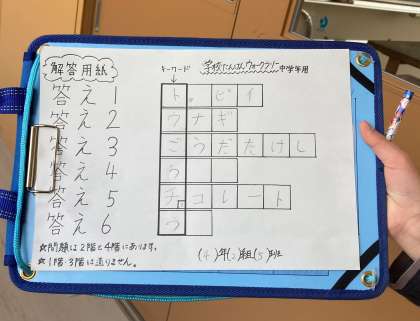 解答用紙
キーワード
学校たんけんウォークラリー中学年用
答え1 ト。ビイ
答え2 ウナギ
答え3 ごうだたけし
答え4 う
答え5 チョコレート
答え6 つ
★問題は2階と4階にあります。
★1階・3階に走りません。
(4)年(2)組(5)班